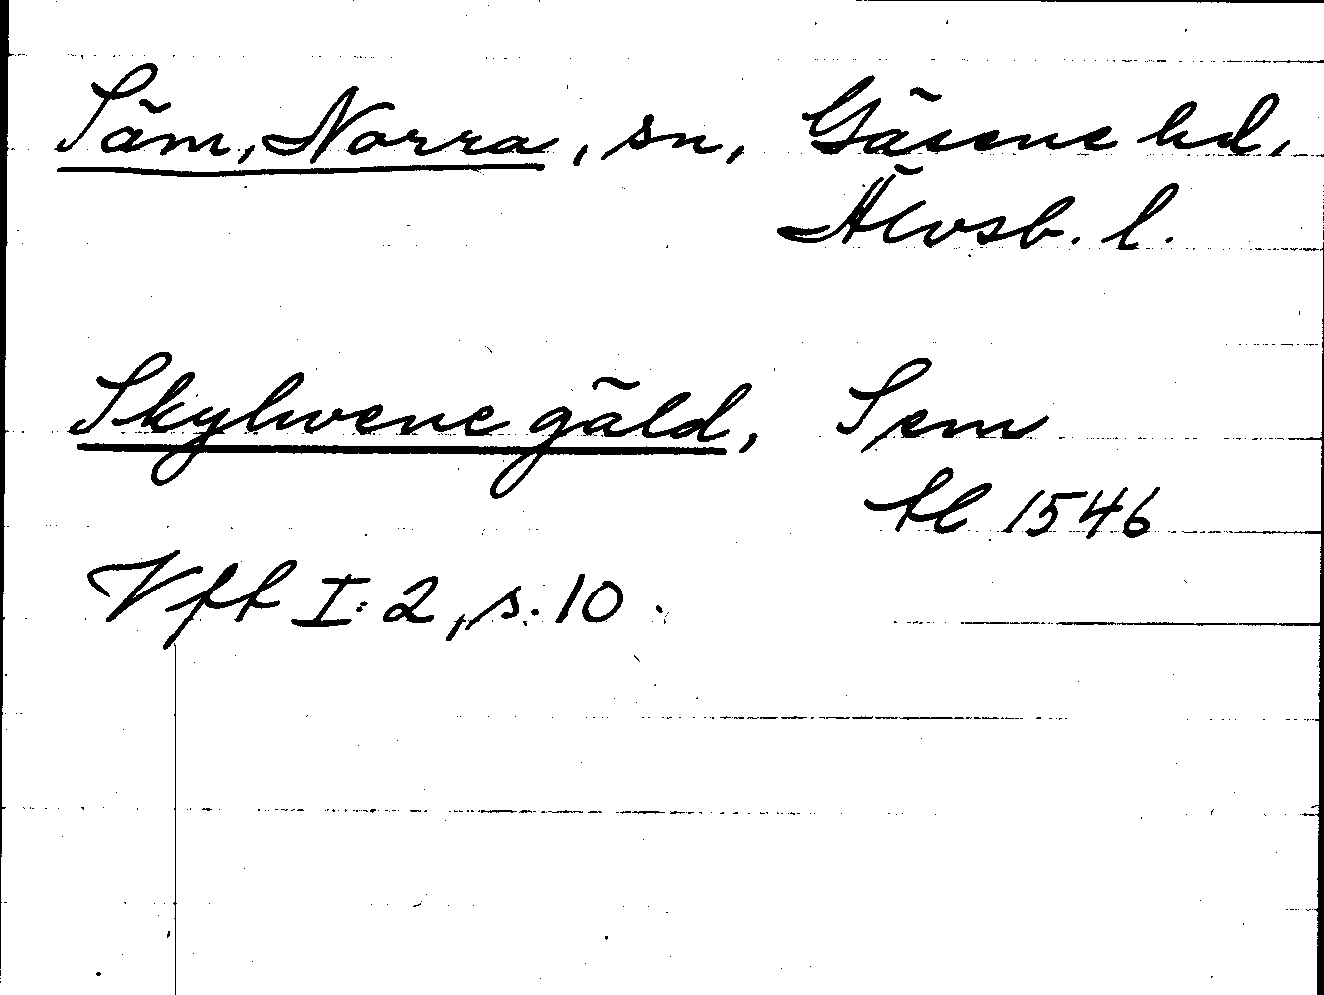 Säm, Norra, sn, Gäsene hd,
Älvsb. l.
Skylvene gäld, Sem
tl 1546
Vft I:2, s. 10.